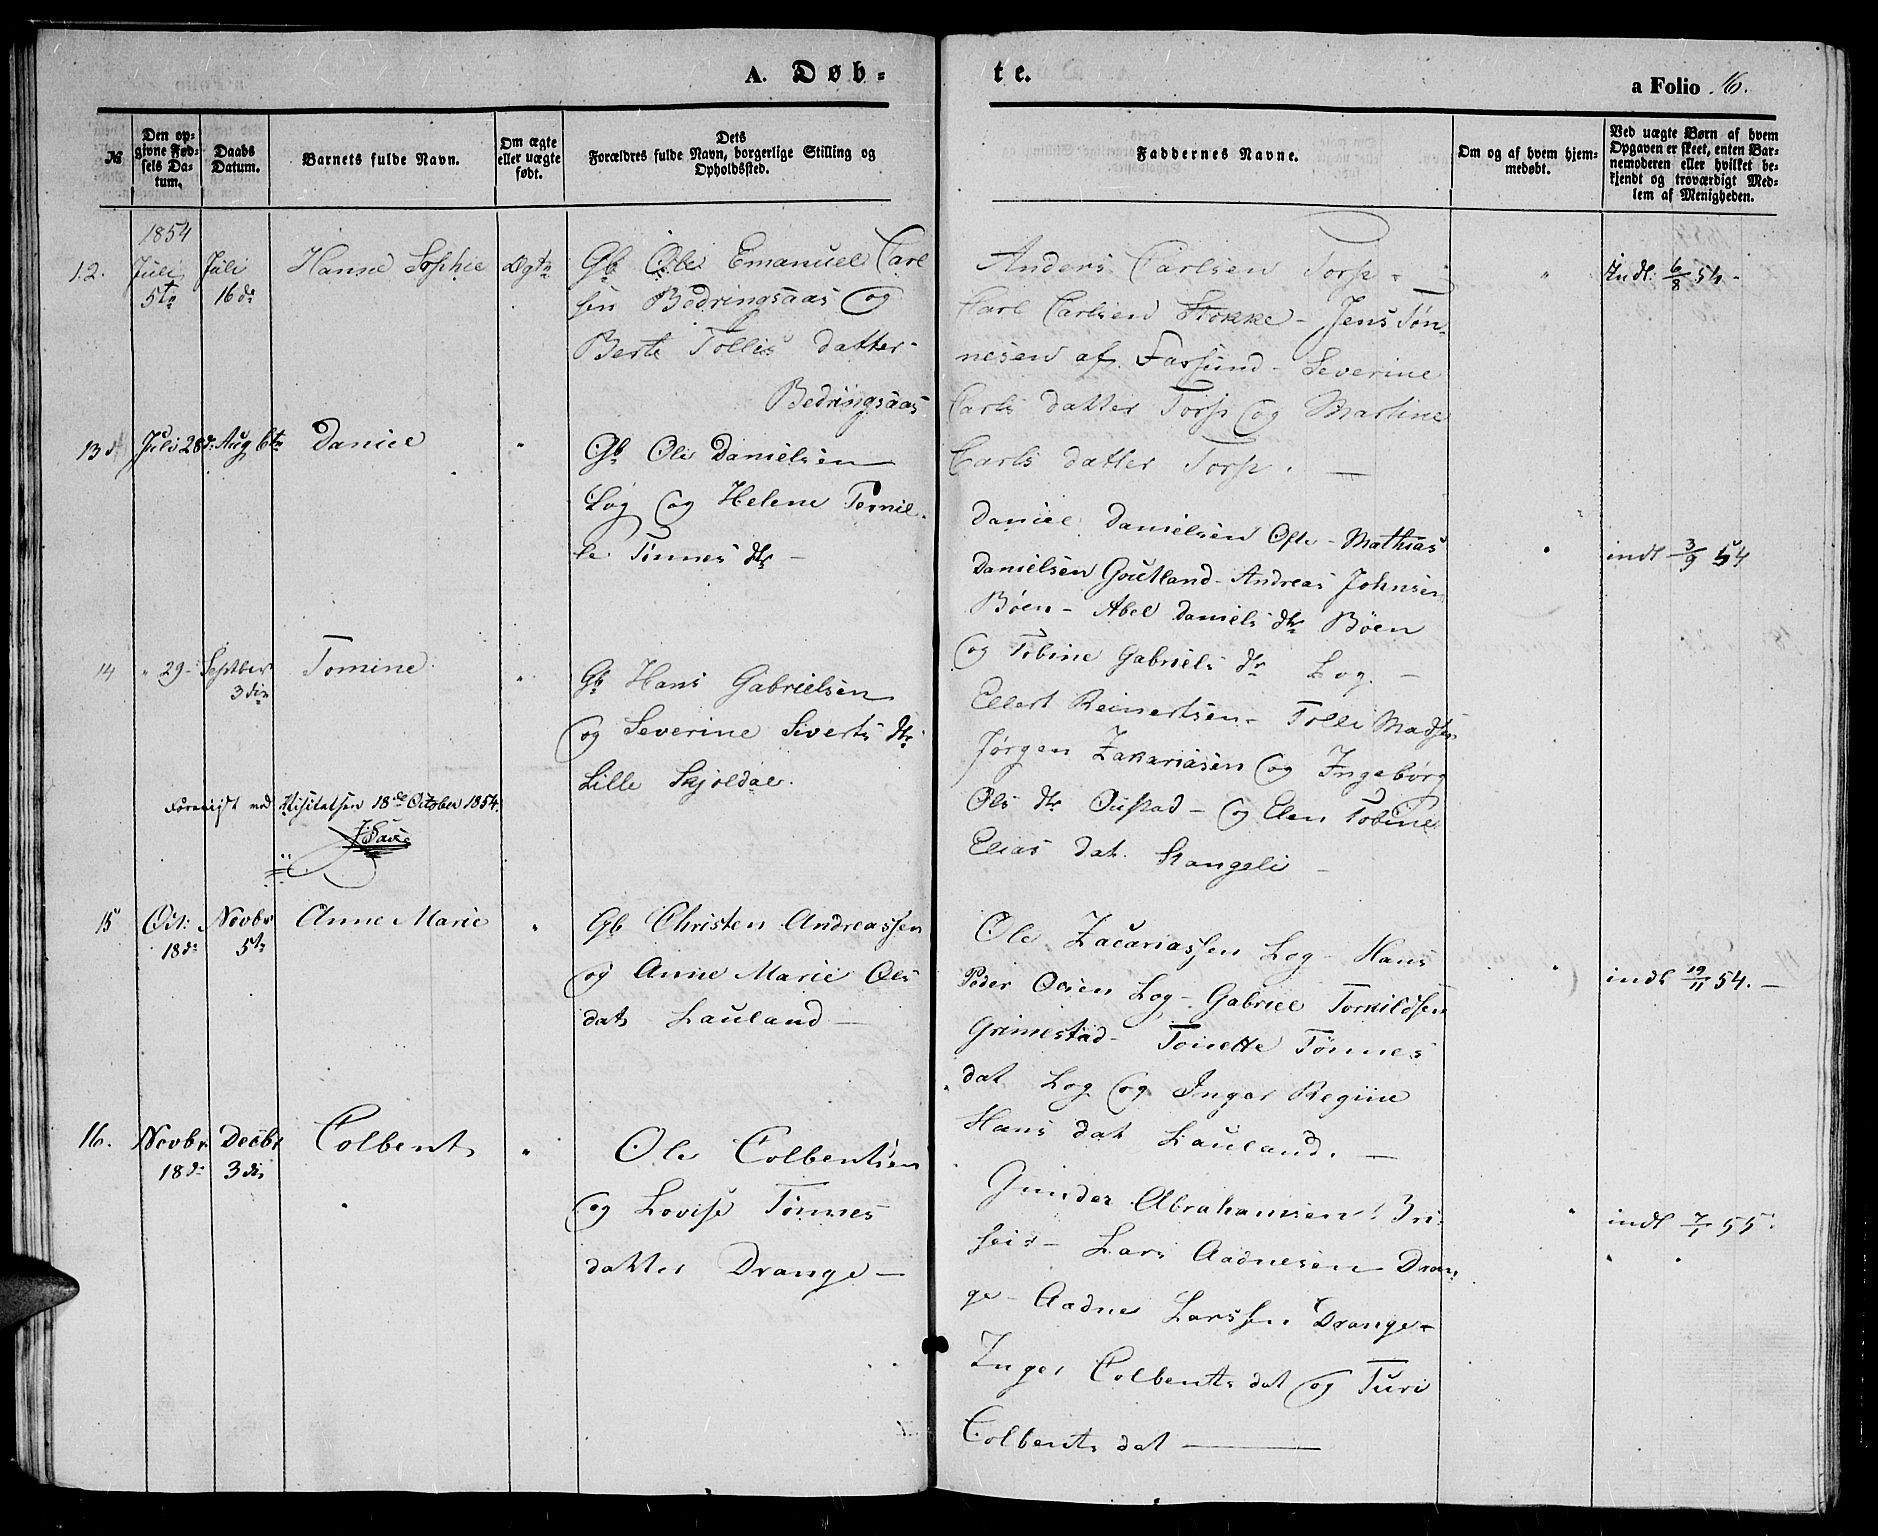 A. Døb-
te.
a Folio 16.
№
Den op-
givne Fød-
sels Da-
tum.
Daabs
Datum.
Barnets fulde Navn.
Om ægte
eller uægte
født.
Dets
Forældres fulde Navn, borgerlige Stilling og
Opholdssted.
Faddernes Navne.
Om og af hvem hjem-
medøbt.
Ved uægte Børn af hvem
Opgaven er skeet, enten Bar-
nemoderen eller hvilket be-
kjendt og troværdigt Med-
lem af Menigheden.
1854
12.
Juli
5te
Juli
16de
Hanne Sophie
Ægte
Gb Ole Emanuel Carl
sen Bedringsaas og
Berte Tollis datter-
Bedringsaas
Anders Carlsen Torp -
Carl Carlsen Stokke - Jens Tøn-
nesen af Farsund - Severine
Carls datter Torp og Martine
Carls datter Torp. —
"
Indl: 6/8 54 -
13
Juli 28de
Aug 6te
Daniel
"
Gb Ole Danielsen
Log og Helene Tomil-
le Tønnes dtr -
Daniel Danielsen Ofte - Mathias
Danielsen Goutland - Andreas Johnsen
Böen - Abel Daniels dtr Böen
og Tobine Gabriels dtr Log. -
"
indl 3/9 54
14
" 29 -
Septber
3die
Tomine
"
Gb Hans Gabrielsen
og Severine Siverts dtr
Lille Skjoldal.
Ellert Reinertsen - Tolli Madsen
Jørgen Zakariasen og Ingeborg
Ols dtr Oustad - og Elen Tobine
Elias dat. Stangeli -
Foreviist ved Visitatsen 18de October 1854.
15
Oct:
18de
Novbr
5te
Anne Marie
"
Gb Christen Andreassen
og Anne Marie Ols
dat Lauland —
Ole Zacariassen Log - Hans
Peder Olsen Log - Gabriel Torkildsen
Grimestad - Tonette Tönnes
dat Log og Inger Regine
Hans dat Lauland. —
"
indl 19/11 54. —
16.
Novbr
18de
Decbr
3die
Colbent
"
Ole Colbentsen
og Lovise Tönnes
datter Drange —
Gunder Abrahamsen
Lars Aadnesen Dran
ge - Aadne Larssen Drange -
Inger Colbents dat og Turi
Colbents dat ———
"
indl 7/1 55.
" "